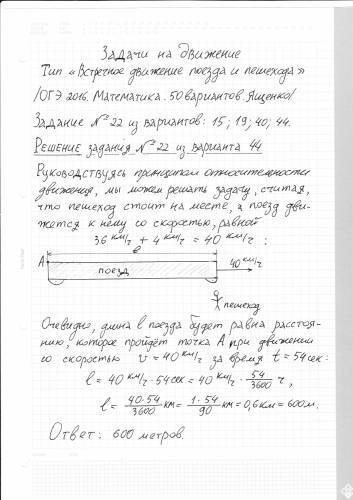 Задачи на движение
Тип «Встречное движение поезда и пешехода»
/ОГЭ 2016. Математика. 50 вариантов. Ященко/
Задание №22 из вариантов: 15; 19; 40; 44.
Решение задания №22 из варианта 44
Руководствуясь принципом относительности
движения, мы можем решать задачу, считая,
что пешеход стоит на месте, а поезд дви-
жется к нему со скоростью, равной
36 км/ч + 4 км/ч = 40 км/ч :
l
A
поезд
40 км/ч
пешеход
Очевидно, длина l поезда будет равна расстоя-
нию, которое пройдёт точка A при движении
со скоростью v = 40 км/ч за время t = 54 сек:
l = 40 км/ч · 54 сек = 40 км/ч · 54/3600 ч,
l = 40·54/3600 км = 1·54/90 км = 0,6 км = 600 м.
Ответ: 600 метров.